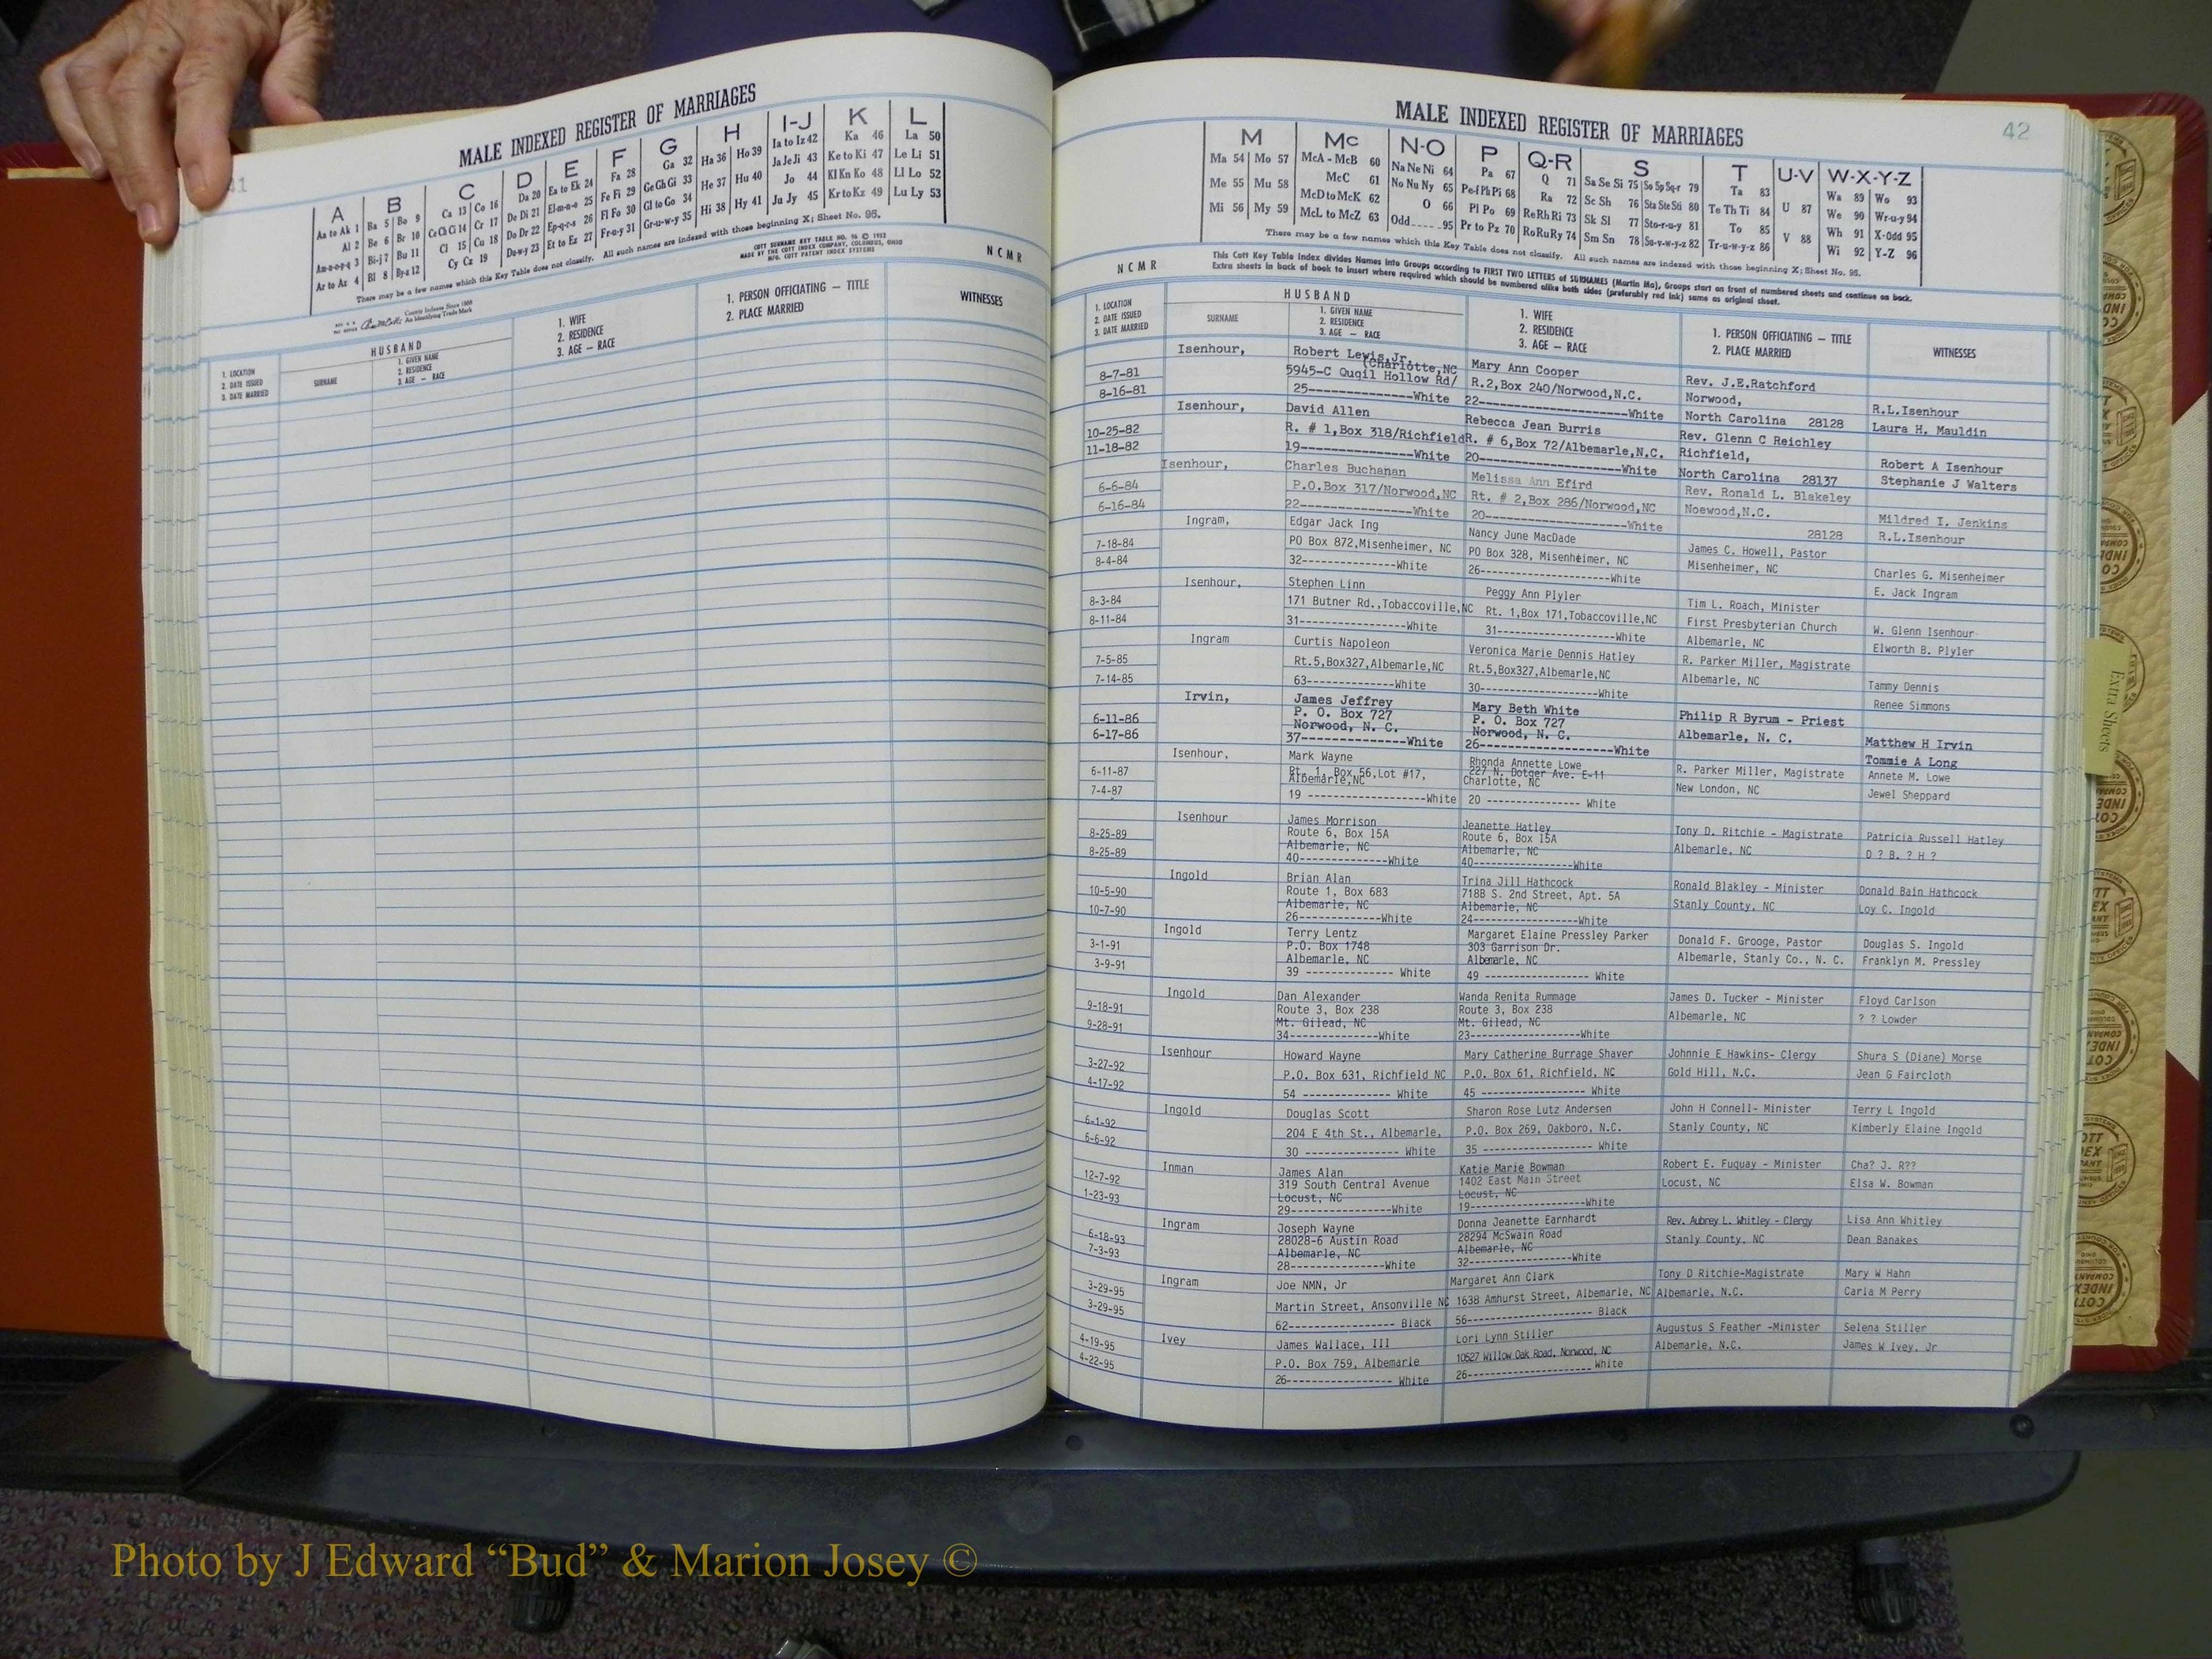 41
MALE INDEXED REGISTER OF MARRIAGES
A B C D E F G H I-J K L
Aa to Ak 1 Ba 5 Bo 9 Ca 13 Co 16 Da 20 Ea to Ek 24 Fa 28 Ga 32 Ha 36 Ho 39 Ia to Iz 42 Ka 46 La 50
Al 2 Be 6 Br 10 Ce Ch Ci 14 Cr 17 De Di 21 El-m-n-o 25 Fe Fi 29 Ge Gh Gi 33 He 37 Hu 40 Ja Je Ji 43 Ke to Ki 47 Le Li 51
Am-n-o-p-q 3 Bi-j 7 Bu 11 Cl 15 Cu 18 Do Dr 22 Ep-q-r-s 26 Fl Fo 30 Gl to Go 34 Hi 38 Hy 41 Jo 44 Kl Kn Ko 48 Ll Lo 52
Ar to Az 4 Bl 8 By-z 12 Cy Cz 19 Du-w-y 23 Et to Ez 27 Fr-u-y 31 Gr-u-w-y 35 Ju Jy 45 Kr to Kz 49 Lu Ly 53
There may be a few names which this Key Table does not classify. All such names are indexed with those beginning X; Sheet No. 95.
COTT SURNAME KEY TABLE NO. 96 © 1952
MADE BY THE COTT INDEX COMPANY, COLUMBUS, OHIO
MFG. COTT PATENT INDEX SYSTEMS
County Indexes Since 1888
An Identifying Trade Mark
NCMR
1. LOCATION
2. DATE ISSUED
3. DATE MARRIED
HUSBAND
SURNAME
1. GIVEN NAME
2. RESIDENCE
3. AGE — RACE
1. WIFE
2. RESIDENCE
3. AGE — RACE
1. PERSON OFFICIATING — TITLE
2. PLACE MARRIED
WITNESSES
42
MALE INDEXED REGISTER OF MARRIAGES
M Mc N-O P Q-R S T U-V W-X-Y-Z
Ma 54 Mo 57 McA - McB 60 Na Ne Ni 64 Pa 67 Q 71 Sa Se Si 75 So Sp Sq-r 79 Ta 83 U 87 Wa 89 Wo 93
Me 55 Mu 58 McC 61 No Nu Ny 65 Pe-f Ph Pi 68 Ra 72 Sc Sh 76 Sta Ste Sti 80 Te Th Ti 84 V 88 We 90 Wr-u-y 94
Mi 56 My 59 McD to McK 62 O 66 Pl Po 69 Re Rh Ri 73 Sk Sl 77 Sto-r-u-y 81 To 85 Wh 91 X-Odd 95
McL to McZ 63 Odd 95 Pr to Pz 70 Ro Ru Ry 74 Sm Sn 78 Su-v-w-y-z 82 Tr-u-w-y-z 86 Wi 92 Y-Z 96
There may be a few names which this Key Table does not classify. All such names are indexed with those beginning X; Sheet No. 95.
This Cott Key Table Index divides Names into Groups according to FIRST TWO LETTERS of SURNAMES (Martin Ma), Groups start on front of numbered sheets and continue on back.
Extra sheets in back of book to insert where required which should be numbered alike both sides (preferably red ink) same as original sheet.
NCMR
1. LOCATION
2. DATE ISSUED
3. DATE MARRIED
HUSBAND
SURNAME
1. GIVEN NAME
2. RESIDENCE
3. AGE — RACE
1. WIFE
2. RESIDENCE
3. AGE — RACE
1. PERSON OFFICIATING — TITLE
2. PLACE MARRIED
WITNESSES
Isenhour, Robert Lewis,Jr. Mary Ann Cooper Rev. J.E.Ratchford
(Charlotte,NC
8-7-81 5945-C Quail Hollow Rd/ R.2,Box 240/Norwood,N.C. Norwood, R.L.Isenhour
8-16-81 25---------------White 22---------------White North Carolina 28128 Laura H. Mauldin
Isenhour, David Allen Rebecca Jean Burris Rev. Glenn C Reichley
10-25-82 R. # 1,Box 318/Richfield R. # 6,Box 72/Albemarle,N.C. Richfield, Robert A Isenhour
11-18-82 19---------------White 20---------------White North Carolina 28137 Stephanie J Walters
Isenhour, Charles Buchanan Melissa Ann Efird Rev. Ronald L. Blakeley
6-6-84 P.O.Box 317/Norwood,NC Rt. # 2,Box 286/Norwood,NC Noewood,N.C. Mildred I. Jenkins
6-16-84 22---------------White 20---------------White 28128 R.L.Isenhour
Ingram, Edgar Jack Ing Nancy June MacDade James C. Howell, Pastor
7-18-84 PO Box 872,Misenheimer, NC PO Box 328, Misenheimer, NC Misenheimer, NC Charles G. Misenheimer
8-4-84 32---------------White 26---------------White E. Jack Ingram
Isenhour, Stephen Linn Peggy Ann Plyler Tim L. Roach, Minister
8-3-84 171 Butner Rd.,Tobaccoville,NC Rt. 1,Box 171,Tobaccoville,NC First Presbyterian Church W. Glenn Isenhour
8-11-84 31---------------White 31---------------White Albemarle, NC Elworth B. Plyler
Ingram Curtis Napoleon Veronica Marie Dennis Hatley R. Parker Miller, Magistrate
7-5-85 Rt.5,Box327,Albemarle,NC Rt.5,Box327,Albemarle,NC Albemarle, NC Tammy Dennis
7-14-85 63---------------White 30---------------White Renee Simmons
Irvin, James Jeffrey Mary Beth White Philip R Byrum - Priest
6-11-86 P. O. Box 727 P. O. Box 727 Albemarle, N. C. Matthew H Irvin
Norwood, N. C. Norwood, N. C.
6-17-86 37---------------White 26---------------White Tommie A Long
Isenhour, Mark Wayne Rhonda Annette Lowe R. Parker Miller, Magistrate Annete M. Lowe
6-11-87 Rt. 1, Box 56,Lot #17, 227 N. Dotger Ave. E-11 New London, NC Jewel Sheppard
Albemarle,NC Charlotte, NC
7-4-87 19 ---------------White 20 --------------- White
Isenhour James Morrison Jeanette Hatley Tony D. Ritchie - Magistrate Patricia Russell Hatley
8-25-89 Route 6, Box 15A Route 6, Box 15A Albemarle, NC D ? B. ? H ?
Albemarle, NC Albemarle, NC
8-25-89 40---------------White 40---------------White
Ingold Brian Alan Trina Jill Hathcock Ronald Blakley - Minister Donald Bain Hathcock
10-5-90 Route 1, Box 683 718B S. 2nd Street, Apt. 5A Stanly County, NC Loy C. Ingold
Albemarle, NC Albemarle, NC
10-7-90 26---------------White 24---------------White
Ingold Terry Lentz Margaret Elaine Pressley Parker Donald F. Grooge, Pastor Douglas S. Ingold
3-1-91 P.O. Box 1748 303 Garrison Dr. Albemarle, Stanly Co., N. C. Franklyn M. Pressley
Albemarle, NC Albemarle, NC
3-9-91 39 --------------- White 49 --------------- White
Ingold Dan Alexander Wanda Renita Rummage James D. Tucker - Minister Floyd Carlson
9-18-91 Route 3, Box 238 Route 3, Box 238 Albemarle, NC ? ? Lowder
Mt. Gilead, NC Mt. Gilead, NC
9-28-91 34---------------White 23---------------White
Isenhour Howard Wayne Mary Catherine Burrage Shaver Johnnie E Hawkins- Clergy Shura S (Diane) Morse
3-27-92 P.O. Box 631, Richfield NC P.O. Box 61, Richfield, NC Gold Hill, N.C. Jean G Faircloth
4-17-92 54 --------------- White 45 --------------- White
Ingold Douglas Scott Sharon Rose Lutz Andersen John H Connell- Minister Terry L Ingold
6-1-92 204 E 4th St., Albemarle, P.O. Box 269, Oakboro, N.C. Stanly County, NC Kimberly Elaine Ingold
6-6-92 30 --------------- White 35 --------------- White
Inman James Alan Katie Marie Bowman Robert E. Fuquay - Minister Cha? J. R??
12-7-92 319 South Central Avenue 1402 East Main Street Locust, NC Elsa W. Bowman
Locust, NC Locust, NC
1-23-93 29---------------White 19---------------White
Ingram Joseph Wayne Donna Jeanette Earnhardt Rev. Aubrey L. Whitley - Clergy Lisa Ann Whitley
6-18-93 28028-6 Austin Road 28294 McSwain Road Stanly County, NC Dean Banakes
Albemarle, NC Albemarle, NC
7-3-93 28---------------White 32---------------White
Ingram Joe NMN, Jr Margaret Ann Clark Tony D Ritchie-Magistrate Mary W Hahn
3-29-95 Martin Street, Ansonville NC 1638 Amhurst Street, Albemarle, NC Albemarle, N.C. Carla M Perry
3-29-95 62--------------- Black 56--------------- Black
Ivey James Wallace, III Lori Lynn Stiller Augustus S Feather -Minister Selena Stiller
4-19-95 P.O. Box 759, Albemarle 10527 Willow Oak Road, Norwood, NC Albemarle, N.C. James W Ivey, Jr
4-22-95 26--------------- White 26--------------- White
Extra Sheets
Photo by J Edward “Bud” & Marion Josey ©